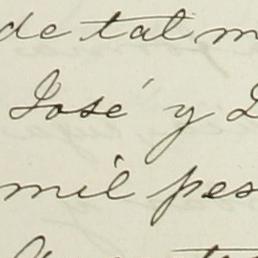 de tal m
José y
mil pes